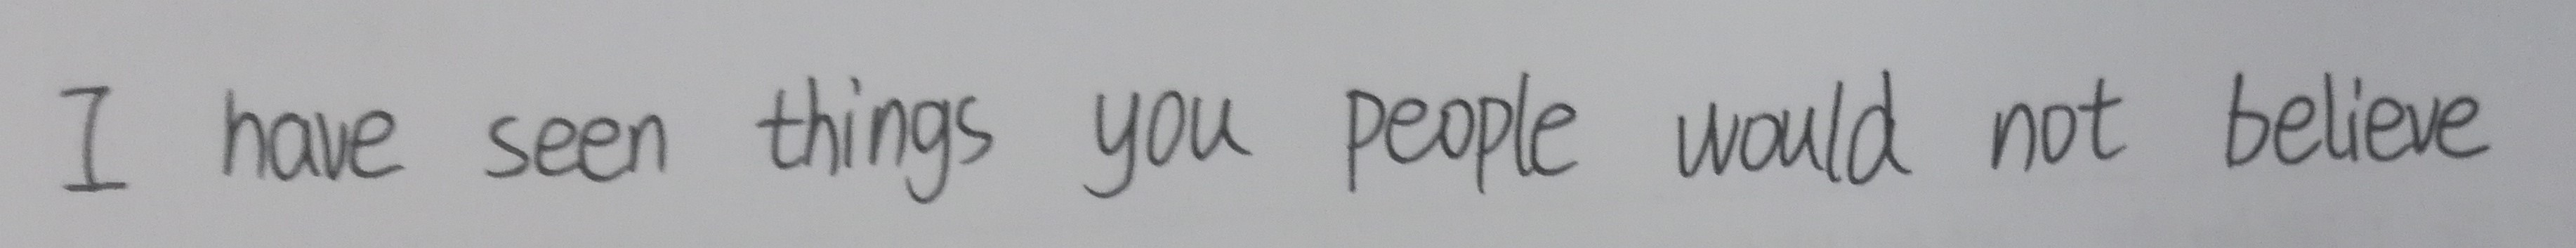 I have seen things you people would not believe